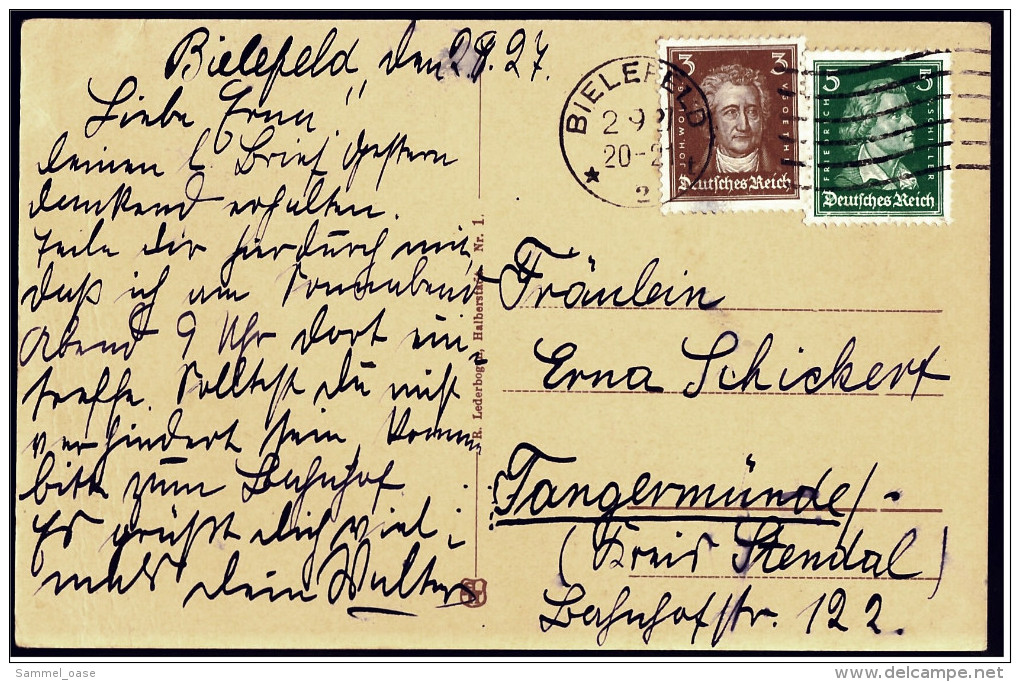 Bielefeld, den 2.9.27.
Liebe Erna!
deinen l. Brief gestern
dankend erhalten.
Teile dir hierdurch mit,
daß ich am Sonnabend
Abend 9 Uhr dort ein-
treffe. Solltest du nicht
verhindert sein, komm
bitte zum Bahnhof
Es grüßt dich viel-
mals dein Walter
R. Lederbogen, Halberstadt Nr. 1.
BIELEFELD
2 9 27
20-21
2
3 3
JOH. WOLFG. GOETHE
Deutsches Reich
5 5
FRIEDRICH SCHILLER
Deutsches Reich
Fräulein
Erna Schickert
Tangermünde/-
(Kreis Stendal)
Bahnhofstr. 122.
Sammel_oase